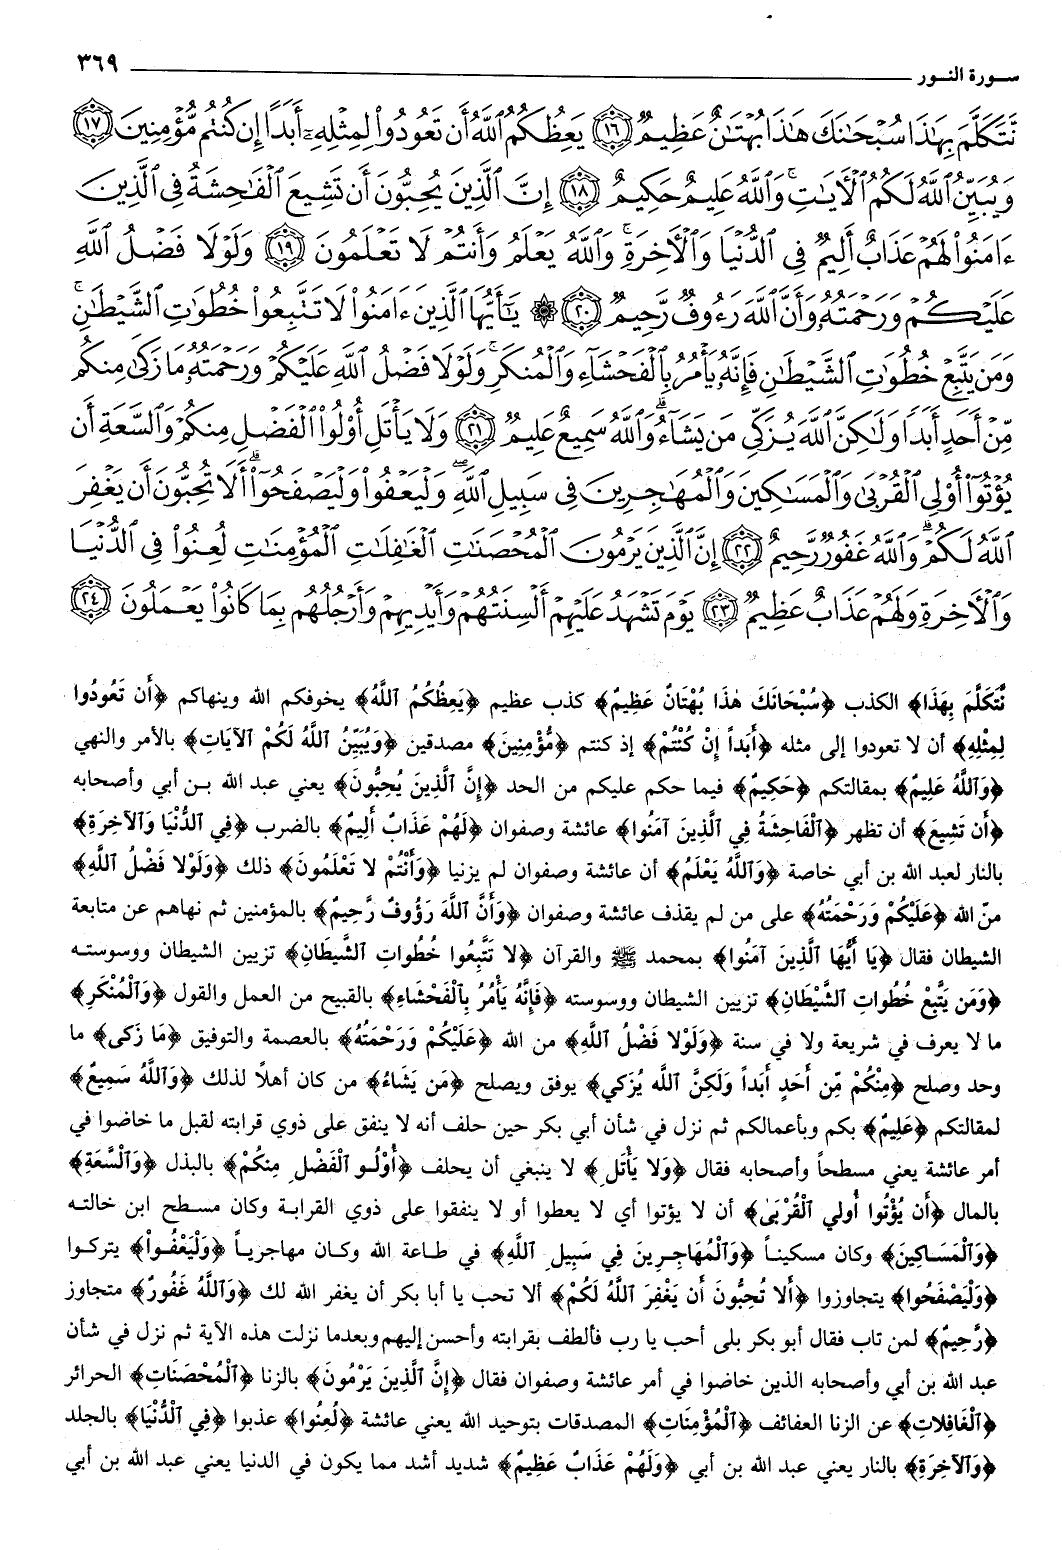 سورة النور ٣٦٩
نَّتَكَلَّمَ بِهَٰذَا سُبْحَٰنَكَ هَٰذَا بُهْتَٰنٌ عَظِيمٌ ﴿١٦﴾ يَعِظُكُمُ ٱللَّهُ أَن تَعُودُوا۟ لِمِثْلِهِۦٓ أَبَدًا إِن كُنتُم مُّؤْمِنِينَ ﴿١٧﴾
وَيُبَيِّنُ ٱللَّهُ لَكُمُ ٱلْءَايَٰتِ ۚ وَٱللَّهُ عَلِيمٌ حَكِيمٌ ﴿١٨﴾ إِنَّ ٱلَّذِينَ يُحِبُّونَ أَن تَشِيعَ ٱلْفَٰحِشَةُ فِى ٱلَّذِينَ
ءَامَنُوا۟ لَهُمْ عَذَابٌ أَلِيمٌ فِى ٱلدُّنْيَا وَٱلْءَاخِرَةِ ۚ وَٱللَّهُ يَعْلَمُ وَأَنتُمْ لَا تَعْلَمُونَ ﴿١٩﴾ وَلَوْلَا فَضْلُ ٱللَّهِ
عَلَيْكُمْ وَرَحْمَتُهُۥ وَأَنَّ ٱللَّهَ رَءُوفٌ رَّحِيمٌ ﴿٢٠﴾ ۞ يَٰٓأَيُّهَا ٱلَّذِينَ ءَامَنُوا۟ لَا تَتَّبِعُوا۟ خُطُوَٰتِ ٱلشَّيْطَٰنِ ۚ
وَمَن يَتَّبِعْ خُطُوَٰتِ ٱلشَّيْطَٰنِ فَإِنَّهُۥ يَأْمُرُ بِٱلْفَحْشَآءِ وَٱلْمُنكَرِ ۚ وَلَوْلَا فَضْلُ ٱللَّهِ عَلَيْكُمْ وَرَحْمَتُهُۥ مَا زَكَىٰ مِنكُم
مِّنْ أَحَدٍ أَبَدًا وَلَٰكِنَّ ٱللَّهَ يُزَكِّى مَن يَشَآءُ ۗ وَٱللَّهُ سَمِيعٌ عَلِيمٌ ﴿٢١﴾ وَلَا يَأْتَلِ أُو۟لُوا۟ ٱلْفَضْلِ مِنكُمْ وَٱلسَّعَةِ أَن
يُؤْتُوٓا۟ أُو۟لِى ٱلْقُرْبَىٰ وَٱلْمَسَٰكِينَ وَٱلْمُهَٰجِرِينَ فِى سَبِيلِ ٱللَّهِ ۖ وَلْيَعْفُوا۟ وَلْيَصْفَحُوٓا۟ ۗ أَلَا تُحِبُّونَ أَن يَغْفِرَ
ٱللَّهُ لَكُمْ ۗ وَٱللَّهُ غَفُورٌ رَّحِيمٌ ﴿٢٢﴾ إِنَّ ٱلَّذِينَ يَرْمُونَ ٱلْمُحْصَنَٰتِ ٱلْغَٰفِلَٰتِ ٱلْمُؤْمِنَٰتِ لُعِنُوا۟ فِى ٱلدُّنْيَا
وَٱلْءَاخِرَةِ وَلَهُمْ عَذَابٌ عَظِيمٌ ﴿٢٣﴾ يَوْمَ تَشْهَدُ عَلَيْهِمْ أَلْسِنَتُهُمْ وَأَيْدِيهِمْ وَأَرْجُلُهُم بِمَا كَانُوا۟ يَعْمَلُونَ ﴿٢٤﴾
نَّتَكَلَّمَ بِهَذَا﴾ الكذب ﴿سُبْحَانَكَ هٰذَا بُهْتَانٌ عَظِيمٌ﴾ كذب عظيم ﴿يَعِظُكُمُ ٱللَّهُ﴾ يخوفكم الله وينهاكم ﴿أَن تَعُودُوا
لِمِثْلِهِ﴾ أن لا تعودوا إلى مثله ﴿أَبَداً إِنْ كُنْتُمْ﴾ إذ كنتم ﴿مُّؤْمِنِينَ﴾ مصدقين ﴿وَيُبَيِّنُ ٱللَّهُ لَكُمْ ٱلآيَاتِ﴾ بالأمر والنهي
﴿وَٱللَّهُ عَلِيمٌ﴾ بمقالتكم ﴿حَكِيمٌ﴾ فيما حكم عليكم من الحد ﴿إِنَّ ٱلَّذِينَ يُحِبُّونَ﴾ يعني عبد الله بن أبي وأصحابه
﴿أَن تَشِيعَ﴾ أن تظهر ﴿ٱلْفَاحِشَةُ فِي ٱلَّذِينَ آمَنُوا﴾ عائشة وصفوان ﴿لَهُمْ عَذَابٌ أَلِيمٌ﴾ بالضرب ﴿فِي ٱلدُّنْيَا وَٱلآخِرَةِ﴾
بالنار لعبد الله بن أبي خاصة ﴿وَٱللَّهُ يَعْلَمُ﴾ أن عائشة وصفوان لم يزنيا ﴿وَأَنْتُمْ لا تَعْلَمُونَ﴾ ذلك ﴿وَلَوْلا فَضْلُ ٱللَّهِ﴾
منّ الله ﴿عَلَيْكُمْ وَرَحْمَتُهُ﴾ على من لم يقذف عائشة وصفوان ﴿وَأَنَّ ٱللَّهَ رَؤُوفٌ رَّحِيمٌ﴾ بالمؤمنين ثم نهاهم عن متابعة
الشيطان فقال ﴿يَا أَيُّهَا ٱلَّذِينَ آمَنُوا﴾ بمحمد ﷺ والقرآن ﴿لا تَتَّبِعُوا خُطُواتِ ٱلشَّيطَانِ﴾ تزيين الشيطان ووسوسته
﴿وَمَن يَتَّبِعْ خُطُواتِ ٱلشَّيْطَانِ﴾ تزيين الشيطان ووسوسته ﴿فَإِنَّهُ يَأْمُرُ بِٱلْفَحْشَاءِ﴾ بالقبيح من العمل والقول ﴿وَٱلْمُنْكَرِ﴾
ما لا يعرف في شريعة ولا في سنة ﴿وَلَوْلا فَضْلُ ٱللَّهِ﴾ من الله ﴿عَلَيْكُمْ وَرَحْمَتُهُ﴾ بالعصمة والتوفيق ﴿مَا زَكى﴾ ما
وحد وصلح ﴿مِنْكُمْ مِّن أَحَدٍ أَبَداً وَلَكِنَّ ٱللَّه يُزَكي﴾ يوفق ويصلح ﴿مَن يَشَاءُ﴾ من كان أهلاً لذلك ﴿وَٱللَّهُ سَمِيعٌ﴾
لمقالتكم ﴿عَلِيمٌ﴾ بكم وبأعمالكم ثم نزل في شأن أبي بكر حين حلف أنه لا ينفق على ذوي قرابته لقبل ما خاضوا في
أمر عائشة يعني مسطحاً وأصحابه فقال ﴿وَلا يَأْتَلِ﴾ لا ينبغي أن يحلف ﴿أُوْلُو ٱلْفَضْلِ مِنكُمْ﴾ بالبذل ﴿وَٱلسَّعَةِ﴾
بالمال ﴿أَن يُؤْتُوا أُولي ٱلْقُرْبَىٰ﴾ أن لا يؤتوا أي لا يعطوا أو لا ينفقوا على ذوي القرابة وكان مسطح ابن خالته
﴿وَٱلْمَسَاكِينَ﴾ وكان مسكيناً ﴿وَٱلْمُهَاجِرِينَ فِي سَبِيلِ ٱللَّهِ﴾ في طاعة الله وكان مهاجرياً ﴿وَلْيَعْفُواْ﴾ يتركوا
﴿وَلْيَصْفَحُوا﴾ يتجاوزوا ﴿أَلا تُحِبُّونَ أَن يَغْفِرَ ٱللَّهُ لَكُمْ﴾ ألا تحب يا أبا بكر أن يغفر الله لك ﴿وَٱللَّهُ غَفُورٌ﴾ متجاوز
﴿رَّحِيمٌ﴾ لمن تاب فقال أبو بكر بلى أحب يا رب فألطف بقرابته وأحسن إليهم وبعدما نزلت هذه الآية ثم نزل في شأن
عبد الله بن أبي وأصحابه الذين خاضوا في أمر عائشة وصفوان فقال ﴿إِنَّ ٱلَّذِينَ يَرْمُونَ﴾ بالزنا ﴿ٱلْمُحْصَنَاتِ﴾ الحرائر
﴿ٱلْغَافِلاتِ﴾ عن الزنا العفائف ﴿ٱلْمُؤْمِنَاتِ﴾ المصدقات بتوحيد الله يعني عائشة ﴿لُعِنُوا﴾ عذبوا ﴿فِي ٱلْدُّنْيَا﴾ بالجلد
﴿وَٱلآخِرَةِ﴾ بالنار يعني عبد الله بن أبي ﴿وَلَهُمْ عَذَابٌ عَظِيمٌ﴾ شديد أشد مما يكون في الدنيا يعني عبد الله بن أبي